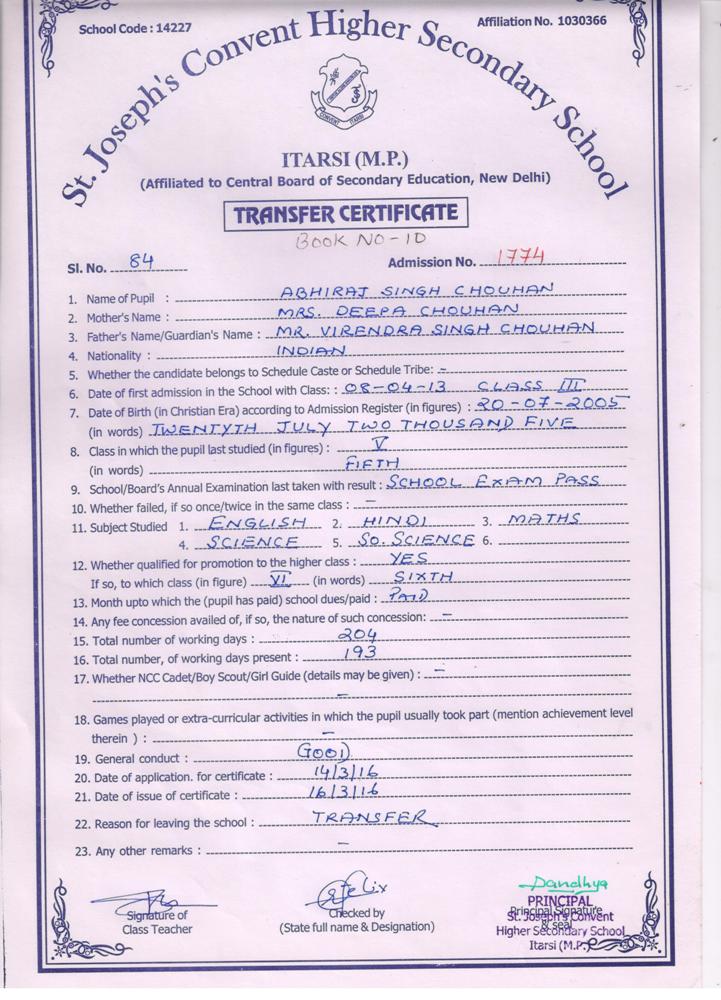 School Code : 14227
Affiliation No. 1030366
St. Joseph's Convent Higher Secondary School
CONVENT ITARSI
ITARSI (M.P.)
(Affiliated to Central Board of Secondary Education, New Delhi)
TRANSFER CERTIFICATE
BOOK NO-10
Sl. No. 84
Admission No. 1774
1. Name of Pupil : ABHIRAJ SINGH CHOUHAN
2. Mother's Name : MRS. DEEPA CHOUHAN
3. Father's Name/Guardian's Name : MR. VIRENDRA SINGH CHOUHAN
4. Nationality : INDIAN
5. Whether the candidate belongs to Schedule Caste or Schedule Tribe: -
6. Date of first admission in the School with Class: : 08-04-13 CLASS III
7. Date of Birth (in Christian Era) according to Admission Register (in figures) : 20-07-2005
(in words) TWENTYTH JULY TWO THOUSAND FIVE
8. Class in which the pupil last studied (in figures) : V
(in words) FIFTH
9. School/Board's Annual Examination last taken with result : SCHOOL EXAM PASS
10. Whether failed, if so once/twice in the same class : -
11. Subject Studied 1. ENGLISH 2. HINDI 3. MATHS
4. SCIENCE 5. SO. SCIENCE 6.
12. Whether qualified for promotion to the higher class : YES
If so, to which class (in figure) VI (in words) SIXTH
13. Month upto which the (pupil has paid) school dues/paid : PAID
14. Any fee concession availed of, if so, the nature of such concession: -
15. Total number of working days : 204
16. Total number, of working days present : 193
17. Whether NCC Cadet/Boy Scout/Girl Guide (details may be given) : -
-
18. Games played or extra-curricular activities in which the pupil usually took part (mention achievement level
therein ) : -
19. General conduct : GOOD
20. Date of application. for certificate : 14/3/16
21. Date of issue of certificate : 16/3/16
22. Reason for leaving the school : TRANSFER
23. Any other remarks : -
Signature of
Class Teacher
Felix
Checked by
(State full name & Designation)
Dandhya
PRINCIPAL
Principal Signature
St. Joseph's Convent
& seal
Higher Secondary School
Itarsi (M.P.)